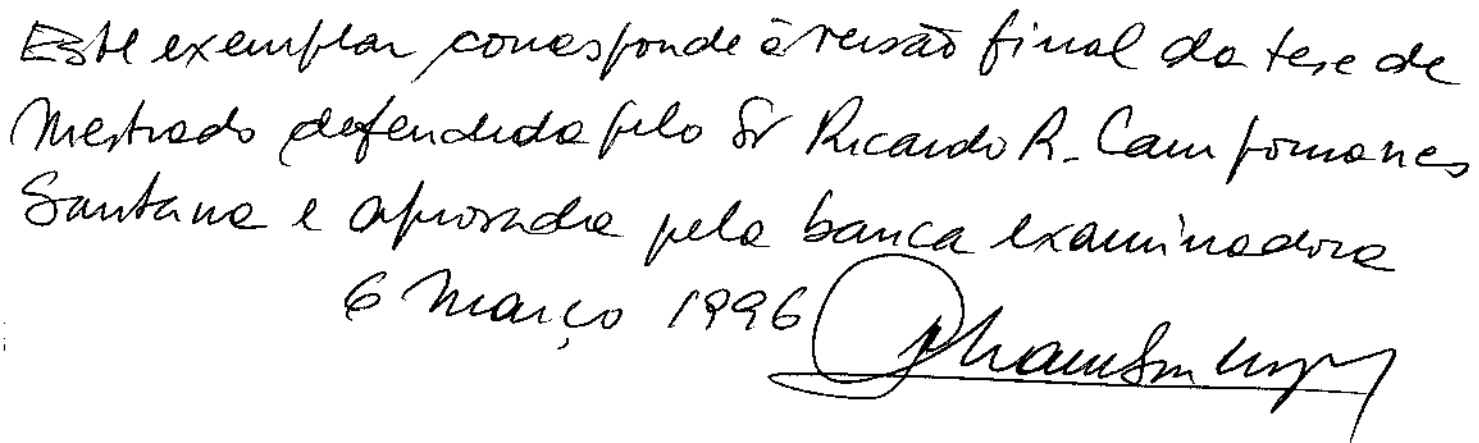 Este exemplar corresponde à versão final da tese de
Mestrado defendida pelo Sr Ricardo R. Campomanes
Santana e aprovada pela banca examinadora
6 Março 1996